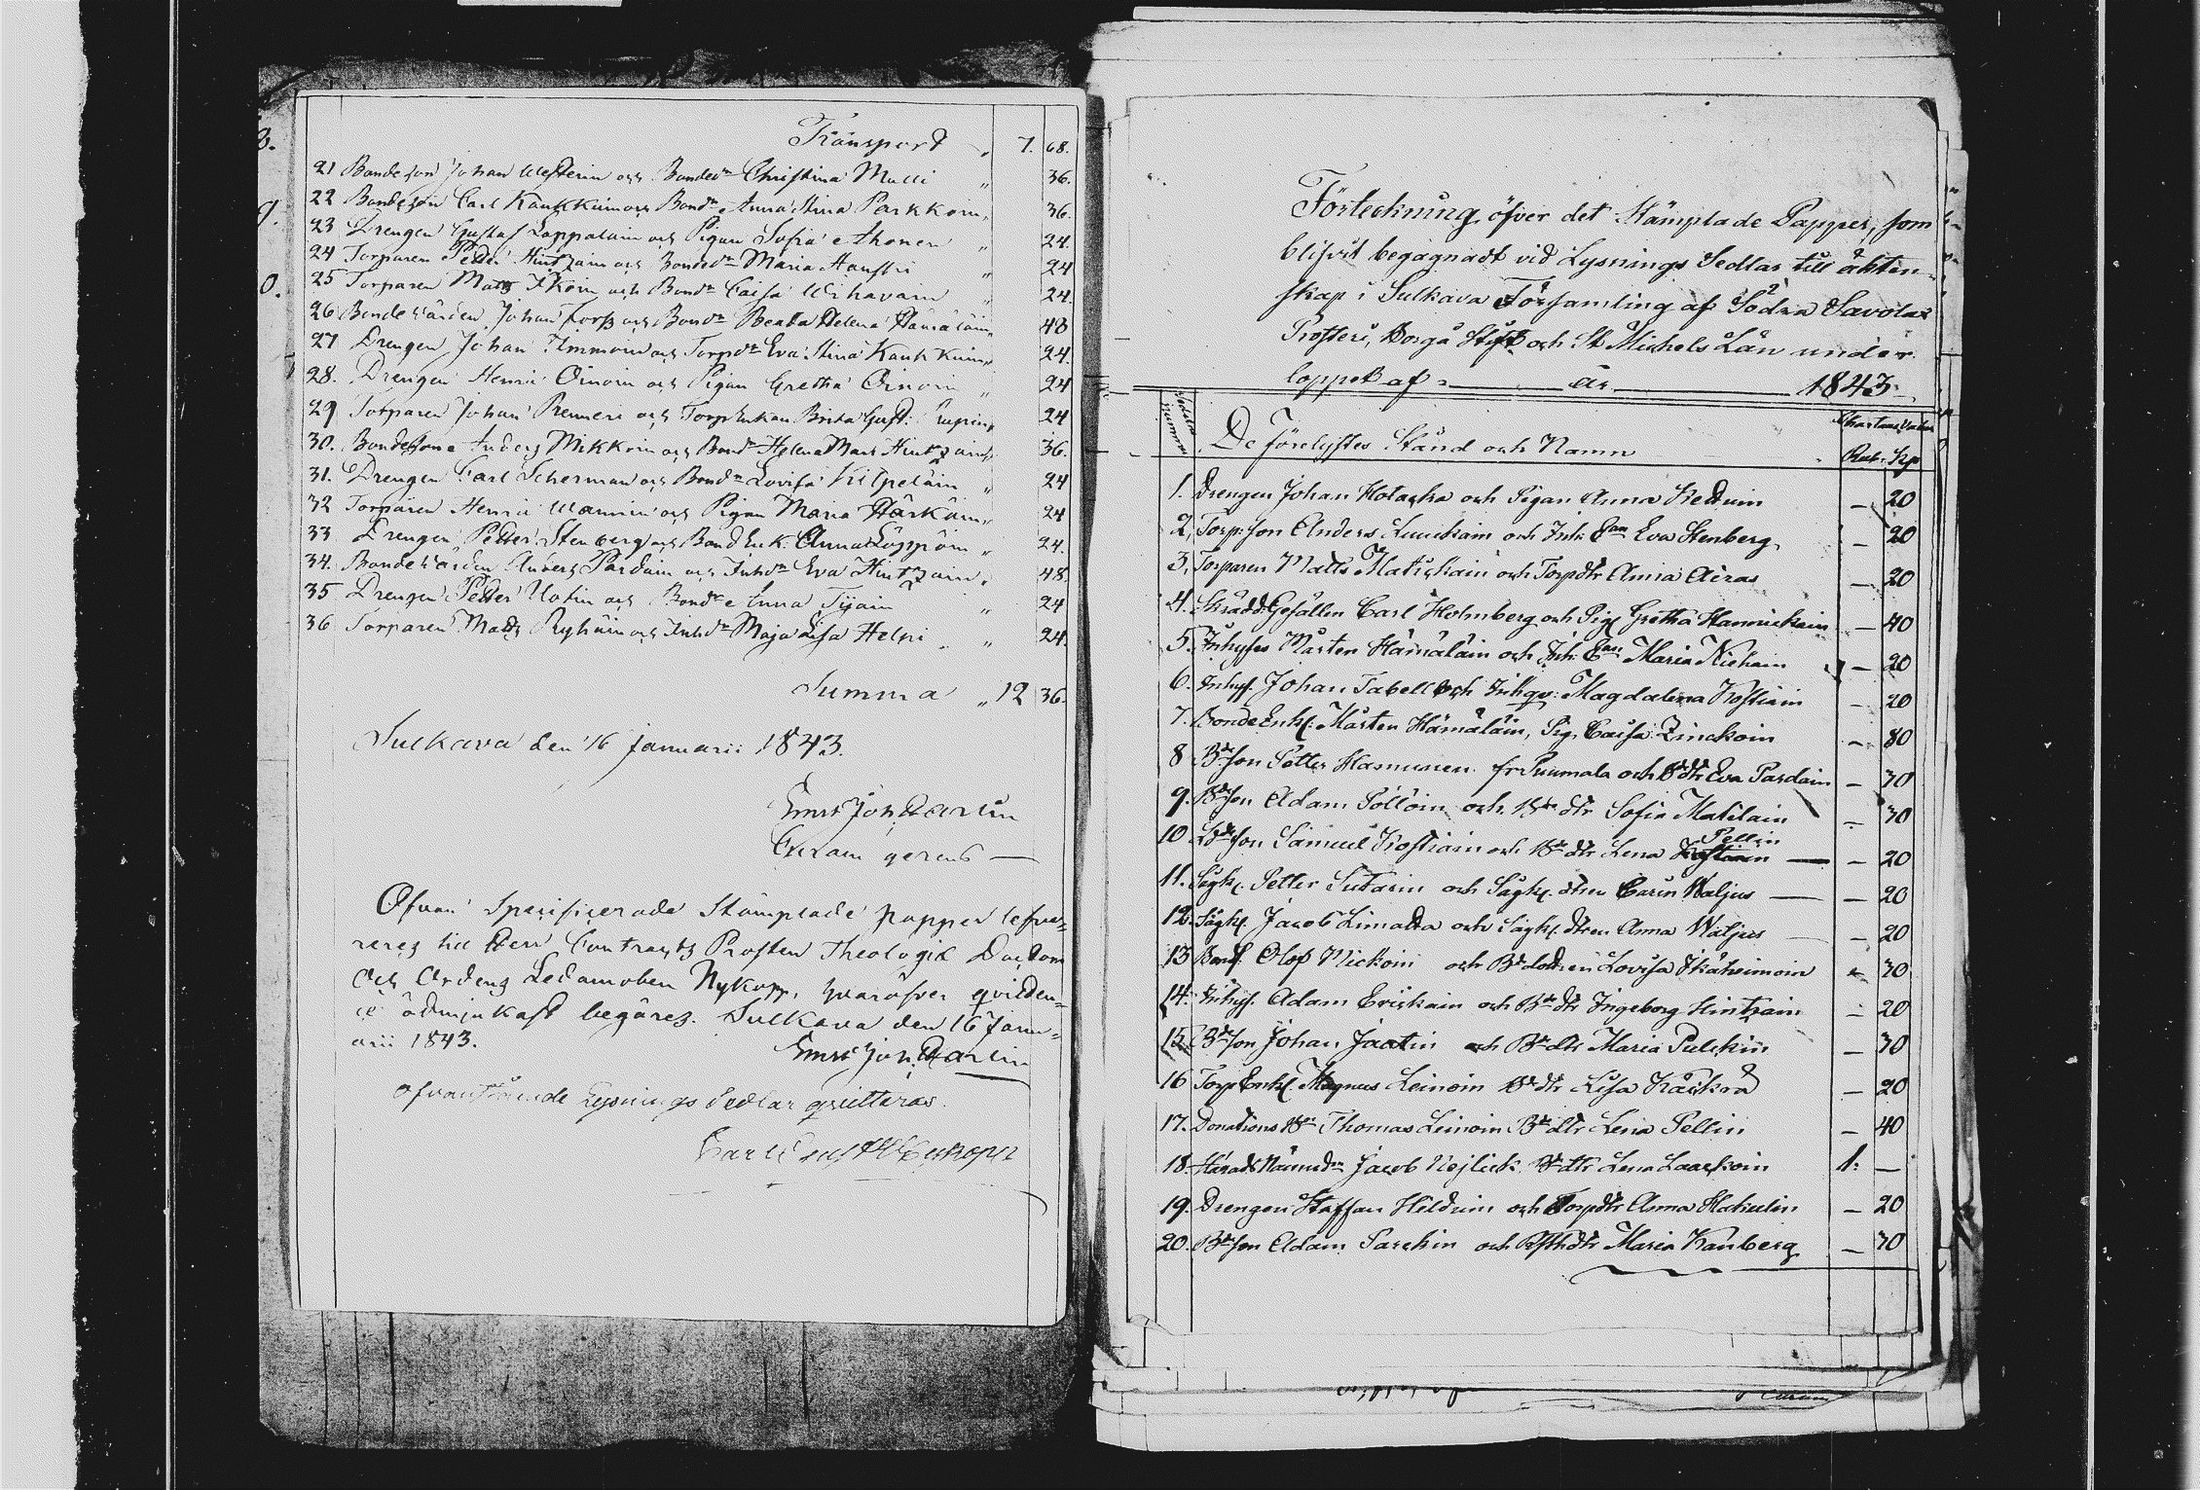 Transport " 7. 68.
21 Bondeson Johan Westerin och Bondedr Christina Malli " 36.
22 Bondeson Carl Kaukkuin och Bonddr Anna Stina Parkkoin " 36.
23 Drengen Gustaf Lappalain och Pigan Sofia Ahonen " 24.
24 Torparen Petter Hintzain och Bondedr Maria Hanski " 24
25 Torparen Matts Ikoin och Bonddr Caisa Wihavain " 24.
26 Bonde Wärden Johan Forss och Bonddr Beata Helena Hämäläin " 48
27 Drengen Johan Immoin och Torpdr Eva Stina Kaukkuin " 24.
28. Drengen Henric Oinoin och Pigan Gretha Oinoin " 24
29 Torparen Johan och Torp Enkan Brita Gust: " 24
30. Bondesone Anders Mikkoin och Bondr Helena Maria Hintzain " 36.
31. Drengen Carl Scherman och Bonddr Lovisa Kilpeläin " 24
32 Torparen Henric Wainin och Pigan Maria Härkäin " 24
33 Drengen Petter Stenberg och Bond Enk: Anna Löppöin " 24.
34. Bonde Wärden Anders Pardain och Inhdr Eva Hintzain " 48.
35 Drengen Petter Utin och Bonddr Anna Tijain " 24
36 Torparen Matts Ryhäin och Inhdr Maja Lisa Helni " " 24.
Summa " 12 36.
Sulkava den 16 Januarii 1843.
Ernst Joh. Darlin
Curam gerens —
Ofvan Specificerade Stämplade papper lefve-
reres till Herr Contracts Prosten Theologiæ Doctorn
och Ordens Ledamoten Nykopp, hvaröfver qvitten-
ce ödmjukast begäres. Sulkava den 16 Janu-
arii 1843.
Ernst Joh. Darlin
Ofvanstående Lysnings Sedlar qvitteras.
Carl Nykopp
Förteckning öfver det Stämplade Papper, som
blifvit begagnadt vid Lysnings Sedlar till äkten-
skap i Sulkava Församling af Södra Savolax
Prosteri, Borgå Stift och St Michels Län under
loppet af — år — 1843.
De förelystes Stånd och Namn Rub. Kp
1. Drengen Johan Hotacka och Pigan Anna Keduin — 20
2. Torp: son Anders Luuckain och Inh: Ean Eva Stenberg — 20
3. Torparen Matts Matickain och Torpdtr Anna Airas — 20
4. Skrädd: Gesällen Carl Holmberg och Pig: Gretha Hannickain — 40
5. Inhyses Mårten Hämäläin och Inh: Ean Maria Nickain — 20
6. Inhys. Johan Tabell och Inhqv: Magdalena Kostiain — 20
7. Bonde Enkl: Mårten Hämäläin, Pig. Caisa Zinckoin — 80
8 Bdeson Petter Hasmunen fr Puumala och Bdedtr Eva Pardain — 30
9. Bdeson Adam Pöllöin och Bdedtr Sofia Matilain — 30
10 Bdeson Samuel Kostiain och Bdedtr Lena Pellin — 20
11. Sågk. Petter Sutarin och Sågk. dtren Carin Waljus — 20
12. Sågk. Jacob Limatta och Sågk. dtren Anna Waljus — 20
13 Bond: Olof Mickoin och Bdedottren Lovisa — 30
14. Inhys. Adam Erickain och Bdedtr Ingeborg Hintzain — 20
15. Bdeson Johan Jaatin och Bdedtr Maria Pulckin — 30
16 Torp Enkl. Magnus Leinoin Bdedtr Lisa Kåckrå — 20
17. Donations Bdn Thomas Leinoin Bdedtr Lena Pellin — 40
18. Härads Nämndn Jacob Nojlick Bdedtr Lena Laackoin 1: —
19. Drengen Staffan Hilduin och Torpdtr Anna Hakulin — 20
20. Bdeson Adam Parckin och Rsthdtr Maria Kanberg — 30